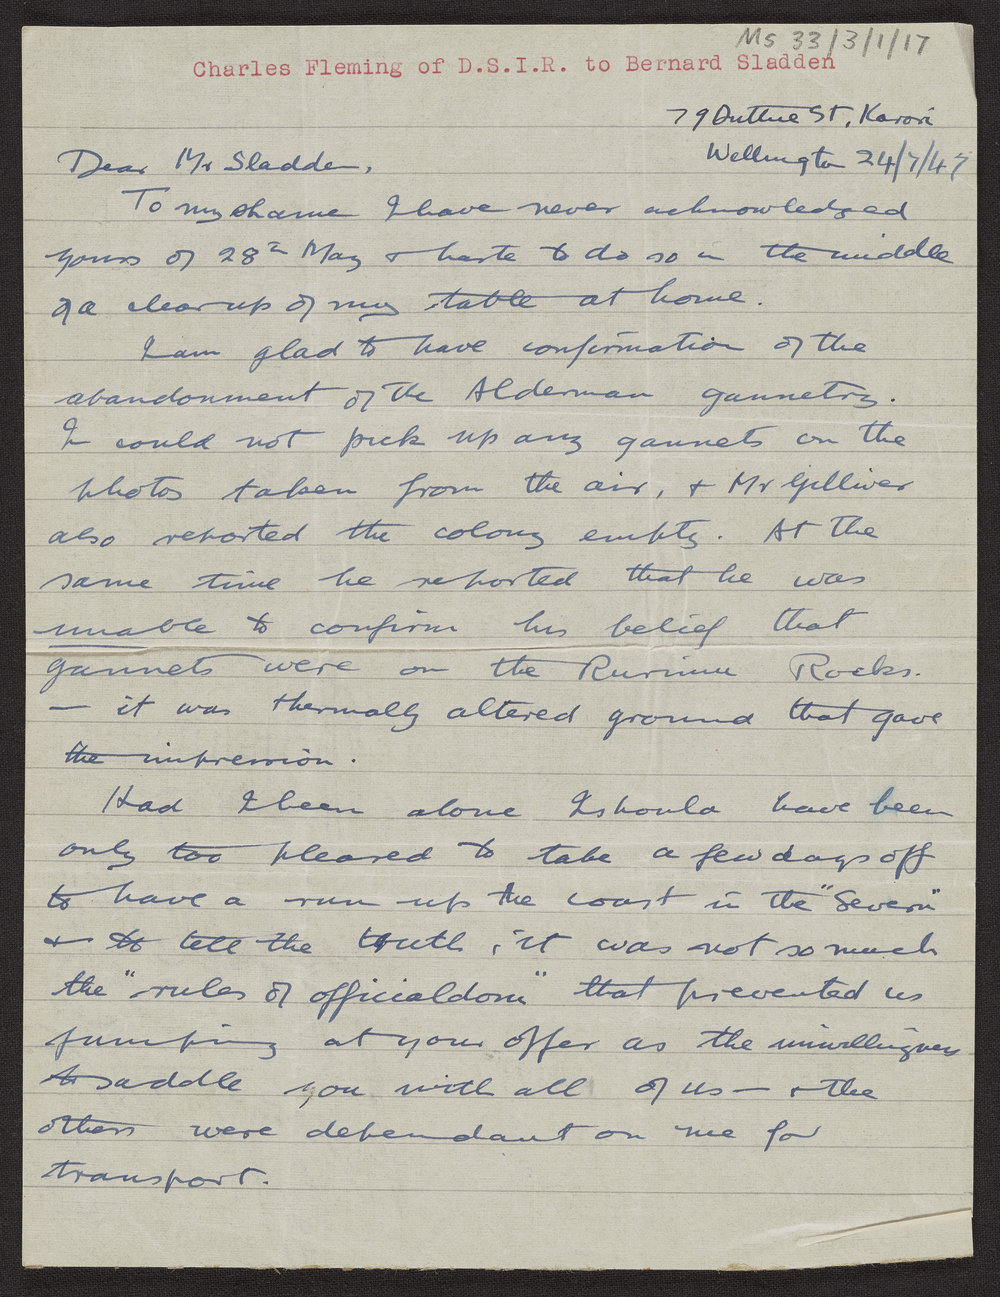 Ms 33/3/1/17
Charles Fleming of D.S.I.R. to Bernard Sladden
79 St, Karori
Wellington 24/7/47
Dear Mr Sladden,
To my shame I have never acknowledged
yours of 28th May & haste to do so in the middle
of a clear up of my table at home.
I am glad to have confirmation of the
abandonment of the Alderman gannetry.
I could not pick up any gannets on the
photos taken from the air, & Mr Gilliver
also reported the colony empty. At the
same time he reported that he was
unable to confirm his belief that
gannets were on the Rurima Rocks.
— it was thermally altered ground that gave
the impression.
Had I been alone I should have been
only too pleased to take a few days off
to have a run up the coast in the "Severn"
& to tell the truth, it was not so much
the "rules of officialdom" that prevented us
jumping at your offer as the unwillingness
to saddle you with all of us — & the
others were dependant on me for
transport.